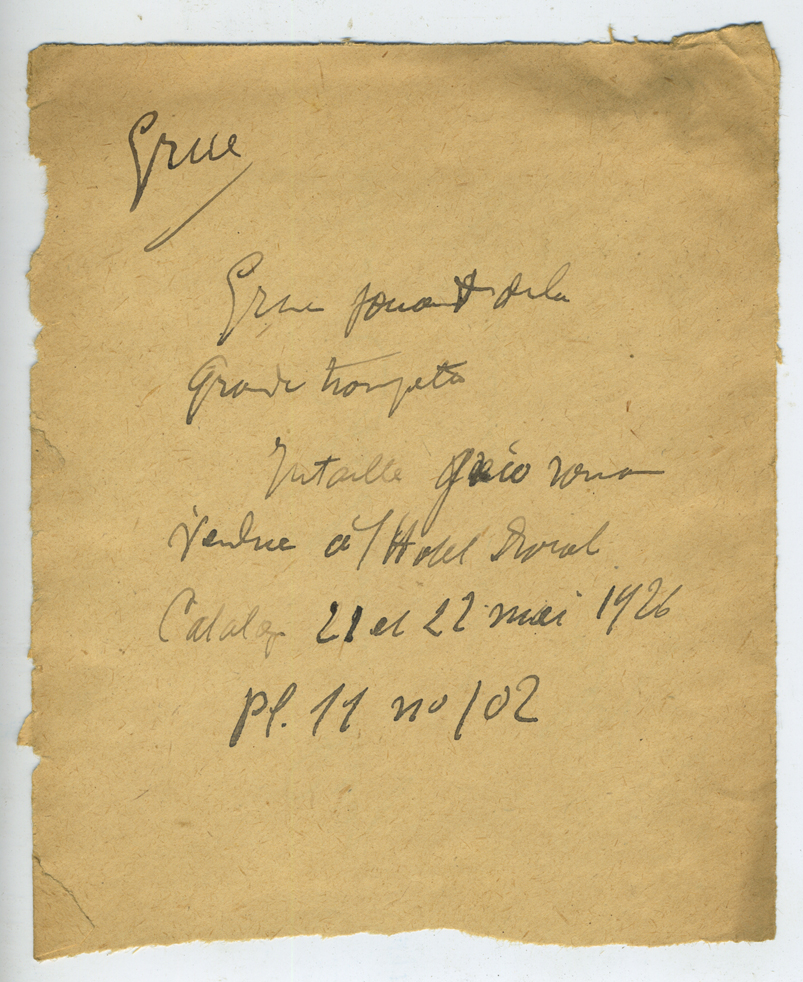 Grue
Grue jouant de la
Grande trompette
Intaille gréco romain
Vendue à l'Hotel Drouot
Catalog 21 et 22 mai 1926
Pl. 11 no 102